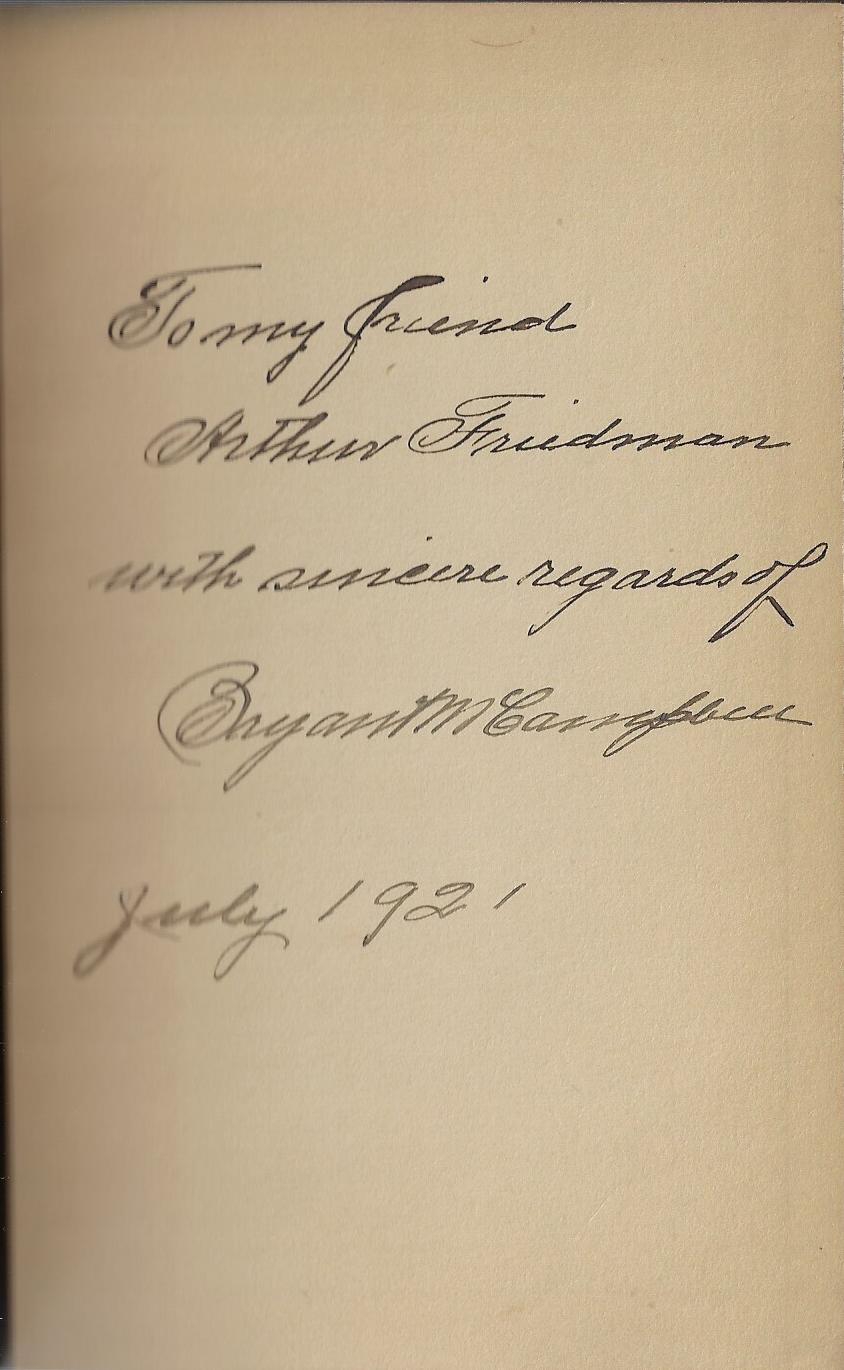 To my friend
Arthur Friedman
with sincere regards of
Bryant M Campbell
July 1921